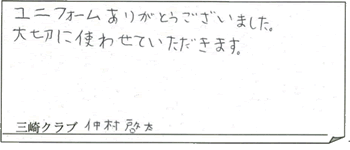 ユニフォームありがとうございました。
大切に使わせていただきます。
三崎クラブ 仲村啓太